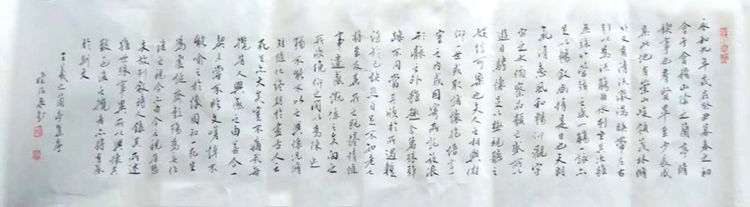 永和九年歲在癸丑暮春之初
會于會稽山陰之蘭亭脩
禊事也羣賢畢至少長咸
集此地有崇山峻領茂林脩
竹又有清流激湍暎帶左右
引以為流觴曲水列坐其次雖
無絲竹管弦之盛一觴一詠亦
足以暢敘幽情是日也天朗
氣清惠風和暢仰觀宇
宙之大俯察品類之盛所以
遊目騁懷足以極視聽之
娛信可樂也夫人之相與俯
仰一世或取諸懷抱悟言一
室之內或因寄所託放浪
形骸之外雖趣舍萬殊靜
躁不同當其欣於所遇暫
得於己快然自足不知老之
將至及其所之既倦情隨
事遷感慨係之矣向之
所欣俛仰之間以為陳迹
猶不能不以之興懷況脩
短隨化終期於盡古人云
死生亦大矣豈不痛哉每
攬昔人興感之由若合一
契未嘗不臨文嗟悼不
能喻之於懷固知一死生
為虛誕齊彭殤為妄作
後之視今亦由今之視昔悲
夫故列敘時人錄其所述
雖世殊事異所以興懷其
致一也後之攬者亦將有感
於斯文
王羲之蘭亭集序